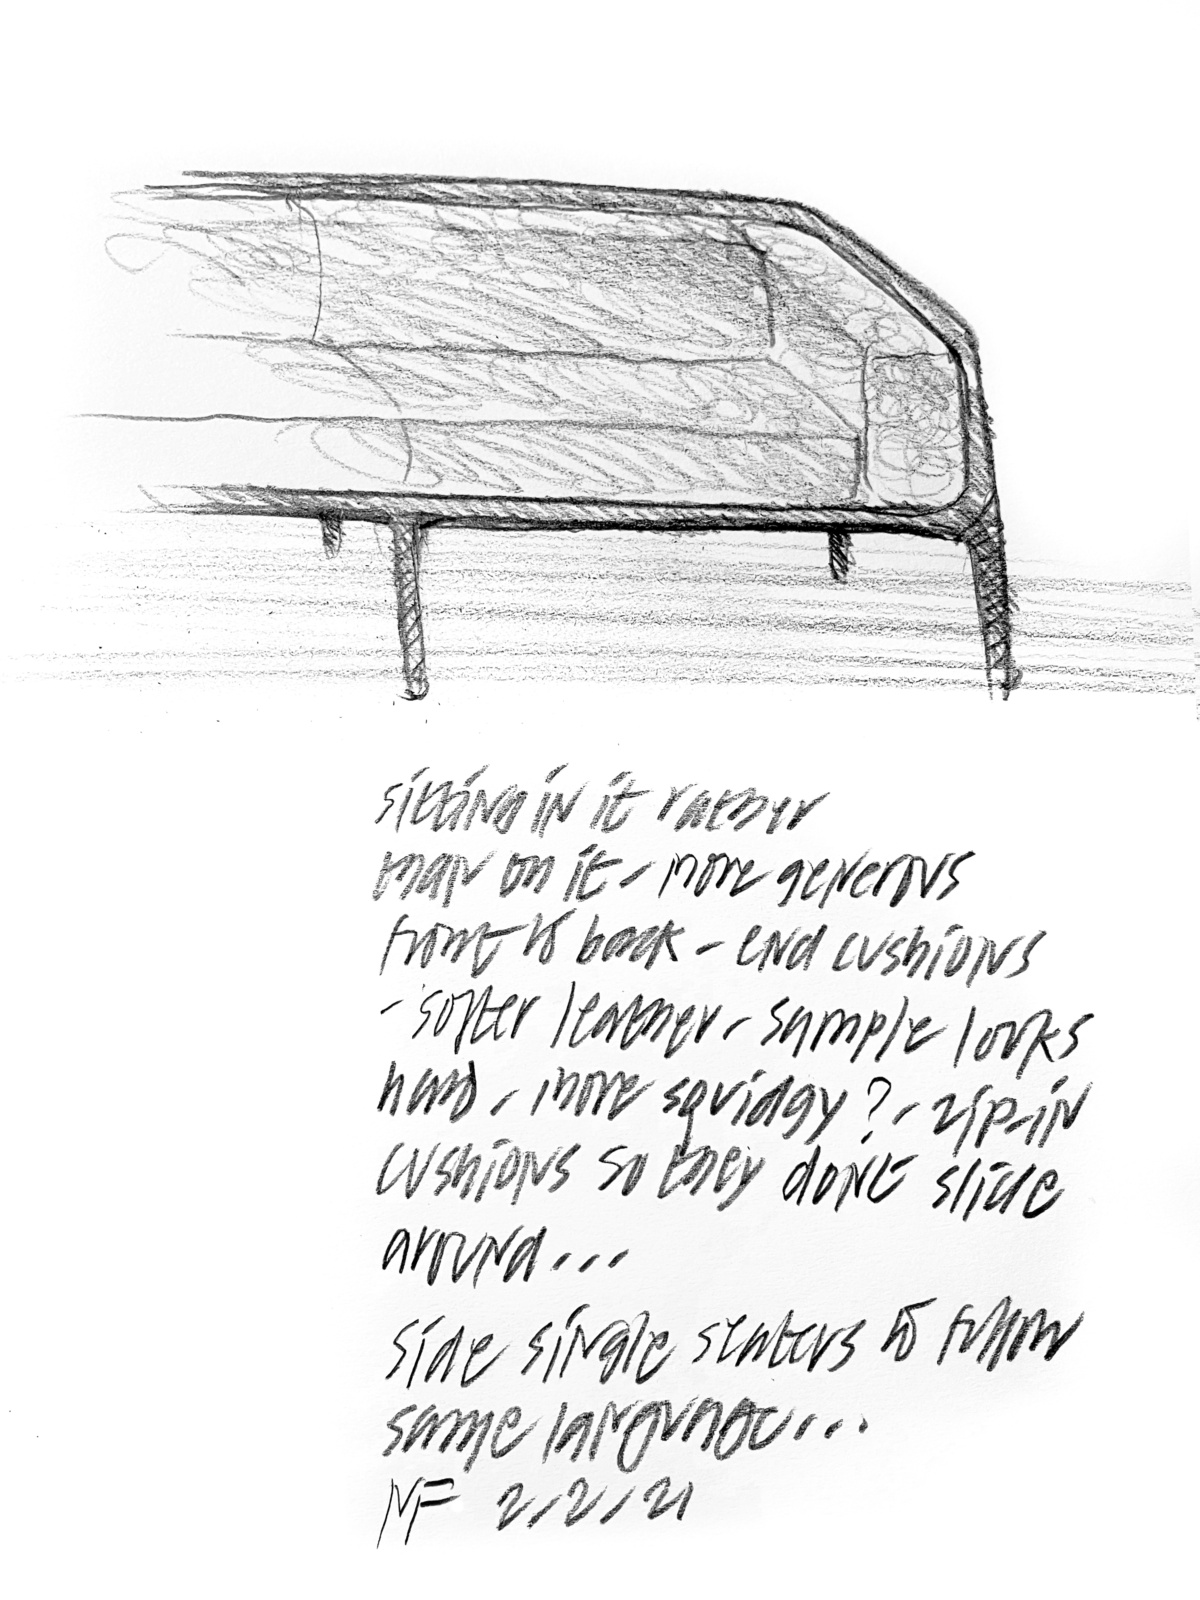 sitting in it rather
than on it - more generous
front to back - end cushions
- softer leather - sample looks
hard - more squidgy ? - zip-in
cushions so they dont slide
around...
side single seaters to follow
same language...
NF 2/2/21